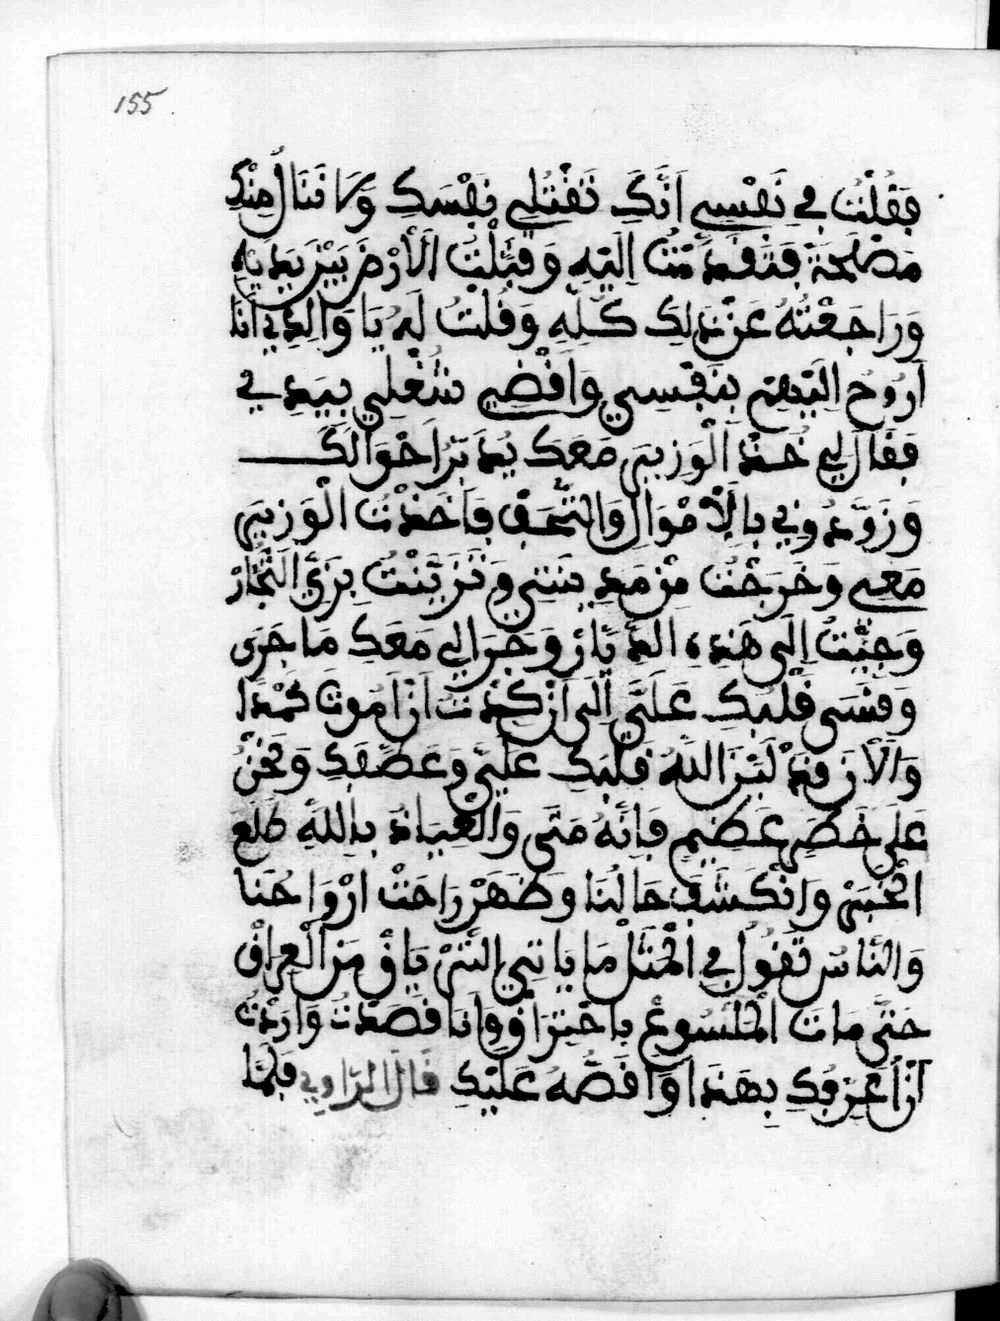 155
فقلت في نفسي انك تقتلي نفسك ولا تنال منك
مصلحة فتقدمت اليه وقبلت الارض بين يديه
وراجعته عن ذلك كله وقلت له يا والدي انا
اروح اليهم بنفسي واقضي شغلي بيدي
فقال لي خذ الوزير معك يدبر احوالك
وزودوني بالاموال والتحف فاخذت الوزير
معي وخرجت من مدينتي وتزينت بزي التجار
وجئت الى هذه الديار وجرا لي معك ما جرى
وقسى قلبك علي الى ان كدت ان اموت كمدا
والان قد لين الله قلبك علي وعطفك ونحن
على خطر عظيم فانه متى والعياذ بالله طلع
الخبر وانكشف حالنا وظهر راحت ارواحنا
والناس تقول في المثل ما ياتي الترياق من العراق
حتى مات الملسوع باحتراق وانا قصدت واردت
ان اعرفك بهذا واقصه عليك قال الراوي فلما